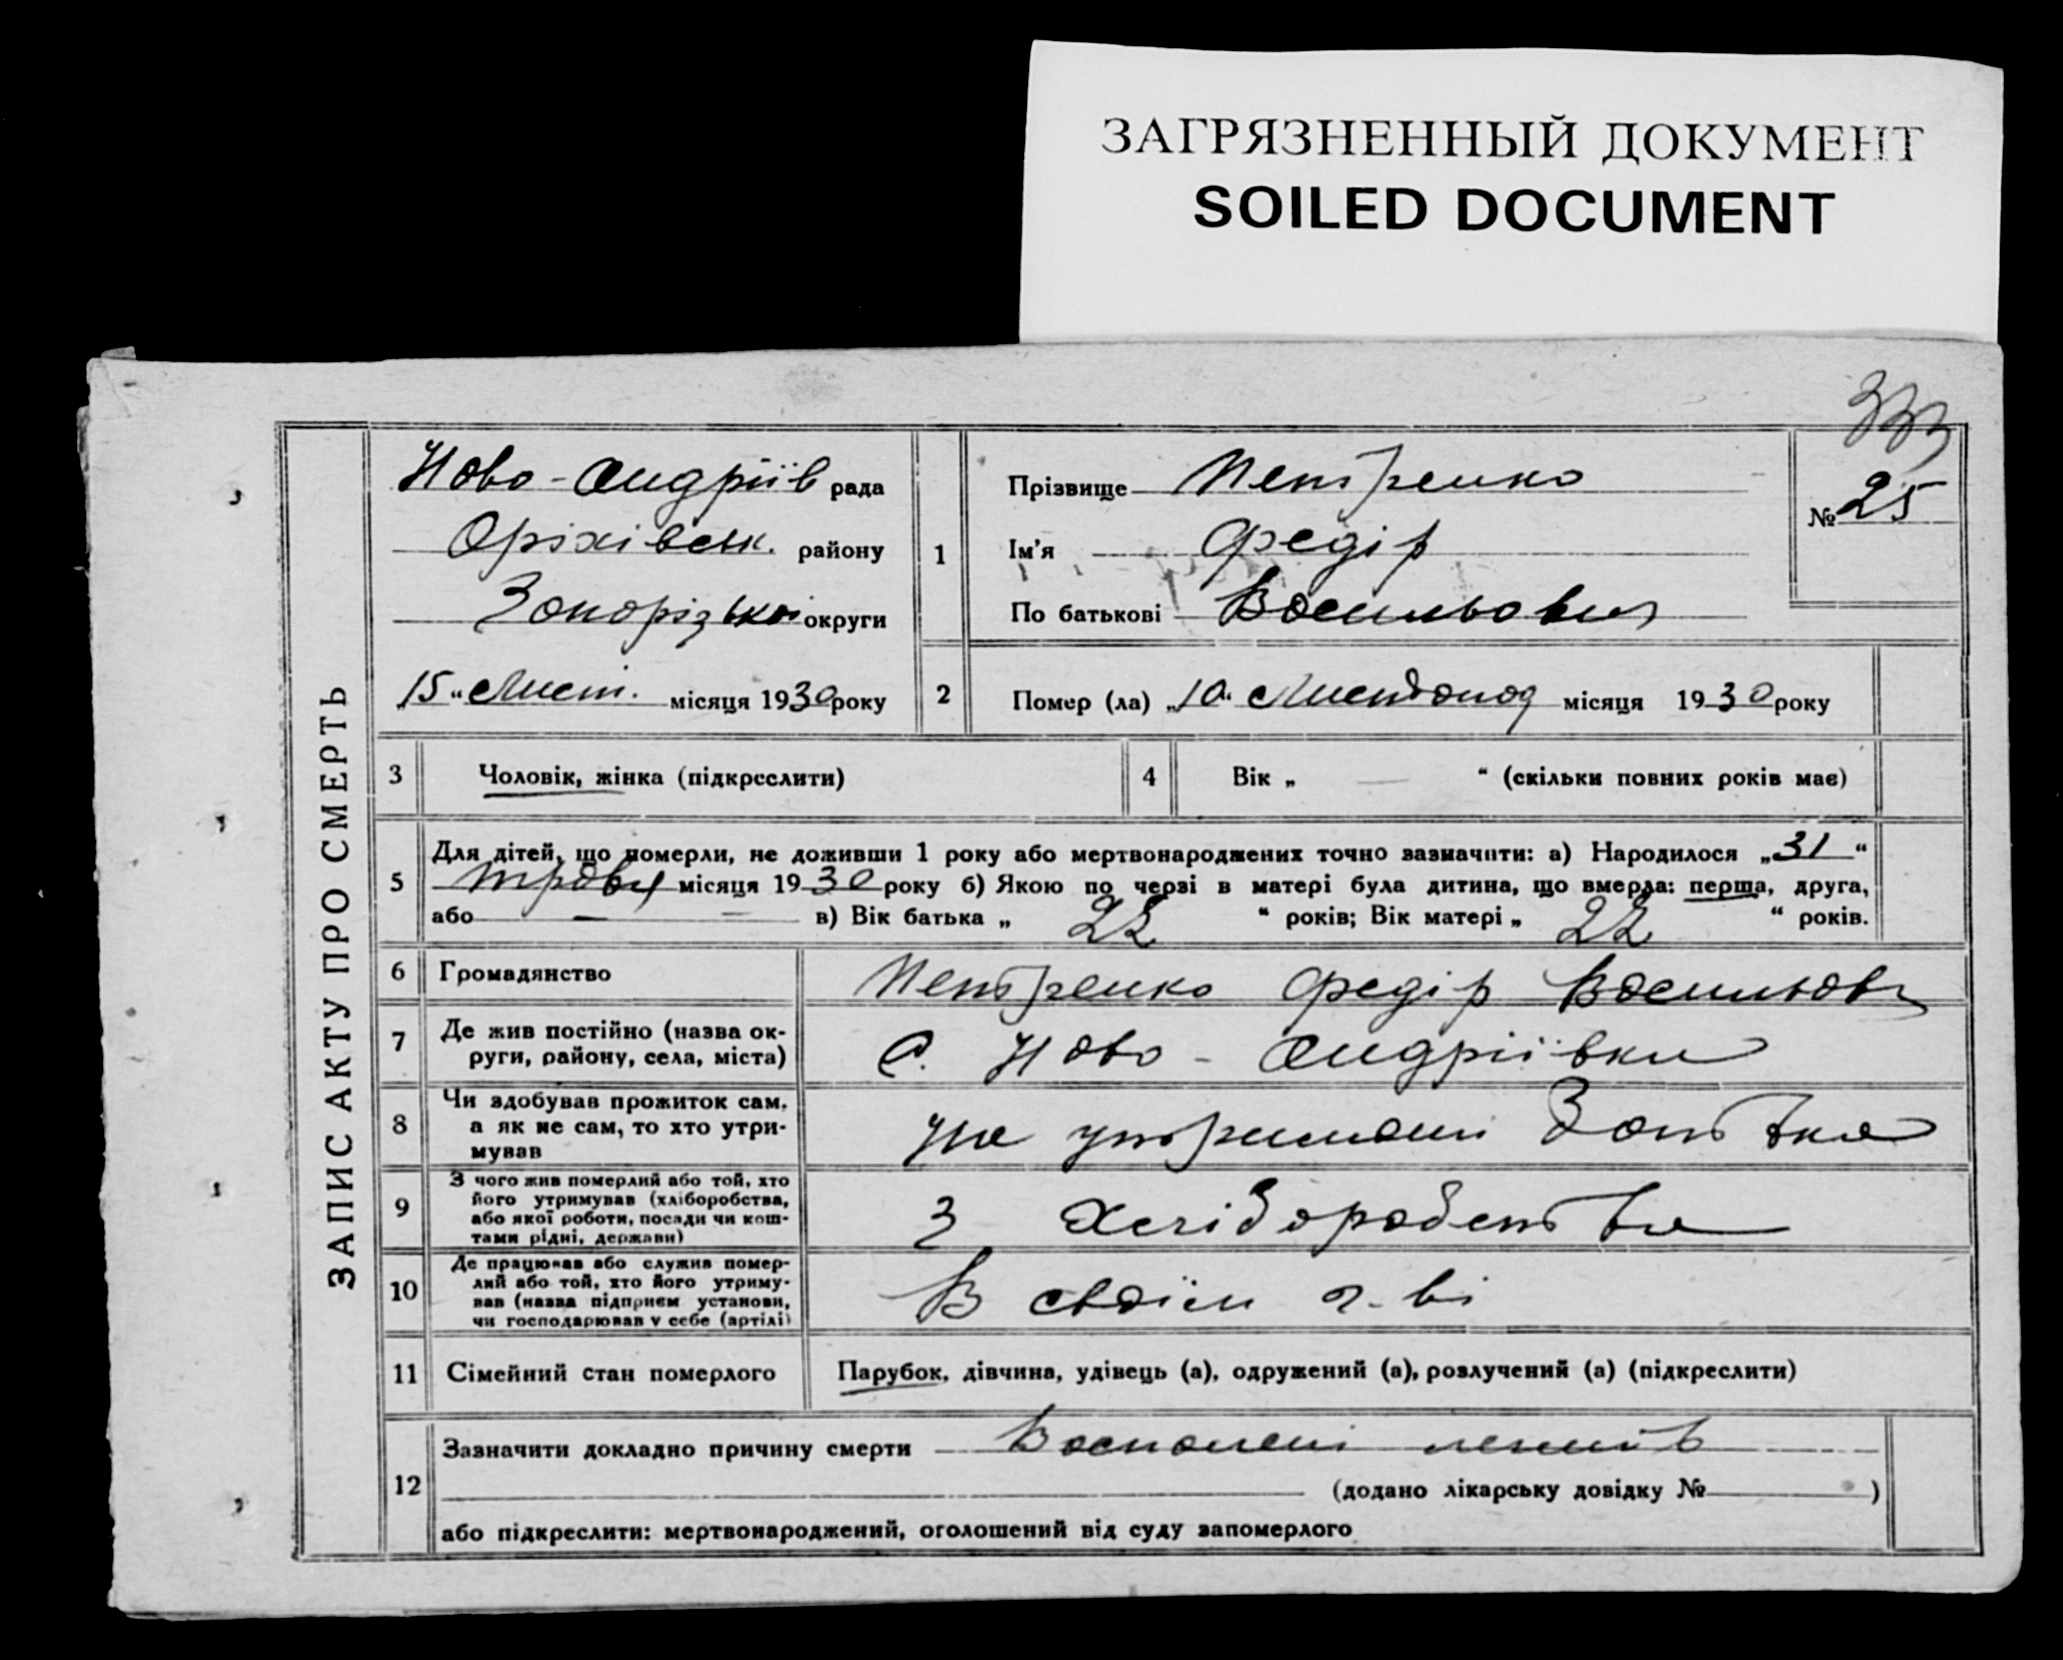 ЗАГРЯЗНЕННЫЙ ДОКУМЕНТ
SOILED DOCUMENT
333
ЗАПИС АКТУ ПРО СМЕРТЬ
Ново-Андріїв рада
Оріхівськ. району
Запорізької округи
„15“ Лист. місяця 1930 року
1
Прізвище Петренко
Ім'я Федір
По батькові Васильович
№ 25
2 Помер (ла) „10“ Листопад місяця 1930 року
3 Чоловік, жінка (підкреслити)
4 Вік „ — “ (скільки повних років має)
5 Для дітей, що померли, не доживши 1 року або мертвонароджених точно зазначити: а) Народилося „31“
травня місяця 1930 року б) Якою по черзі в матері була дитина, що вмерла: перша, друга,
або — — в) Вік батька „ 22 “ років; Вік матері „ 22 “ років.
6 Громадянство Петренко Федір Васильов
7 Де жив постійно (назва ок-
руги, району, села, міста) С. Ново - Андріївки
8 Чи здобував прожиток сам,
а як не сам, то хто утри-
мував На утриманні батька
9 З чого жив померлий або той, хто
його утримував (хліборобства,
або якої роботи, посади чи кош-
тами рідні, держави) З Хліборобства
10 Де працював або служив помер-
лий або той, хто його утриму-
вав (назва підприєм установи,
чи господарював у себе (артілі) В своїм г-ві
11 Сімейний стан померлого Парубок, дівчина, удівець (а), одружений (а), розлучений (а) (підкреслити)
12 Зазначити докладно причину смерти Воспалені легків
(додано лікарську довідку № )
або підкреслити: мертвонароджений, оголошений від суду запомерлого